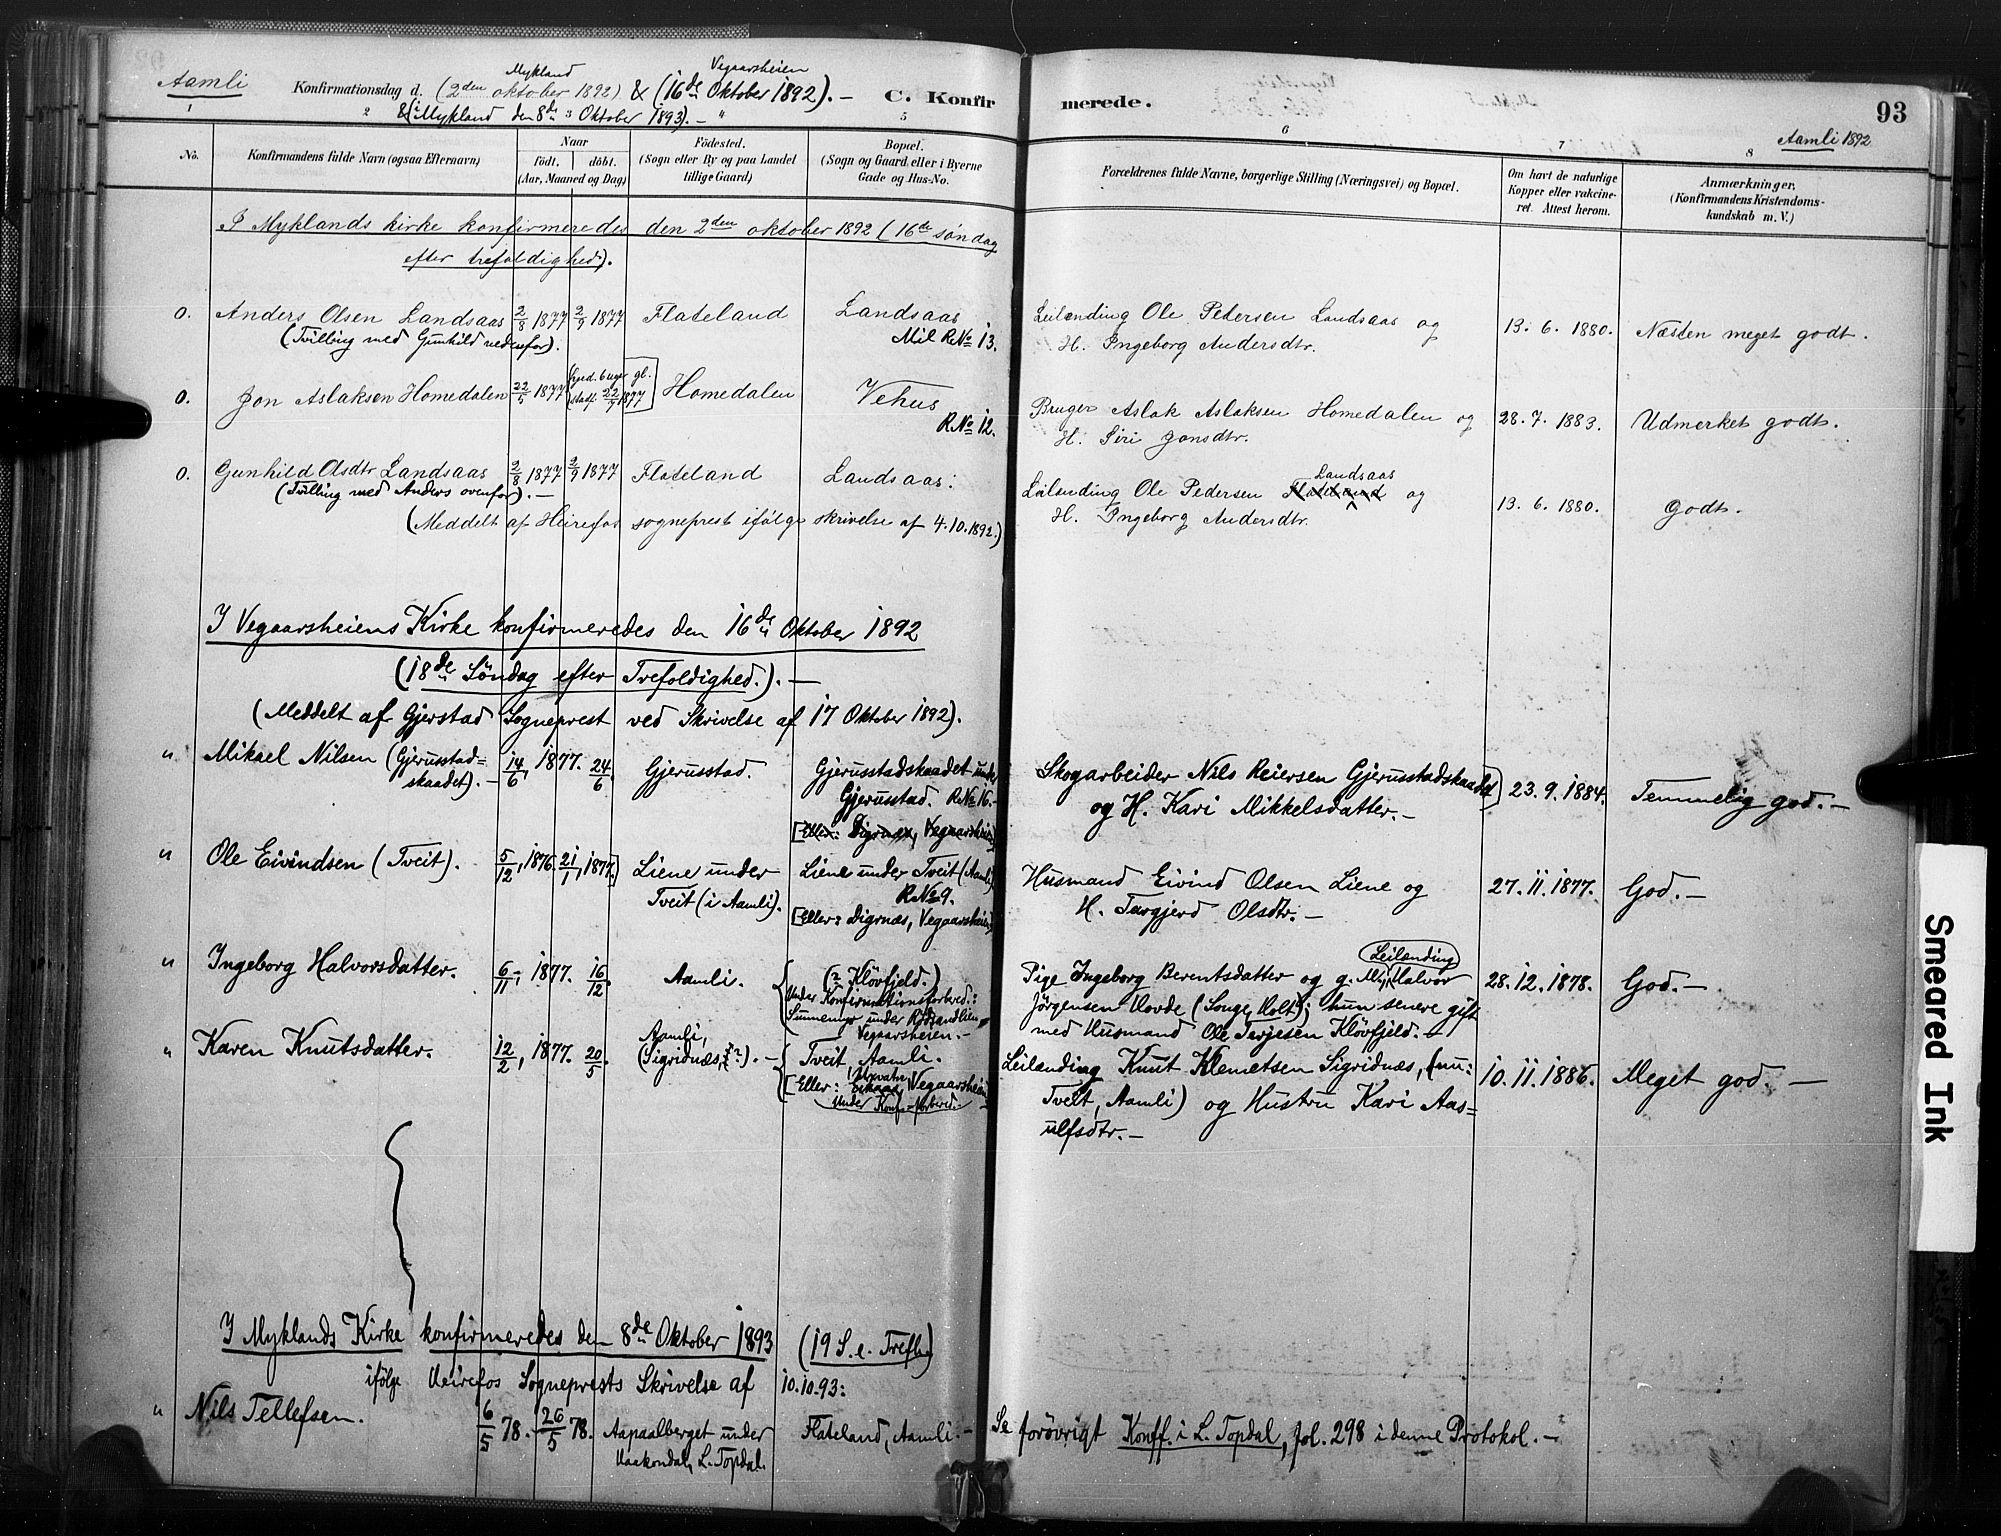 Aamli
Konfirmationsdag d. (2den oktober 1892) & (16de Oktober 1892). —
Mykland
Vegaarsheien
& (i Mykland den 8de Oktober 1893). —
C. Konfir
merede.
93
Aamli 1892
1
2
3
5
6
7
8
No.
Konfirmandens fulde Navn (ogsaa Efternavn)
Naar
født.
døbt.
(Aar, Maaned og Dag)
Fødested.
(Sogn eller By og paa Landet
tillige Gaard)
Bopæl.
(Sogn og Gaard eller i Byerne
Gade og Hus-No.
Forældrenes fulde Navne, borgerlige Stilling (Næringsvei) og Bopæl.
Om havt de naturlige
Kopper eller vakcine-
ret. Attest herom.
Anmærkninger.
(Konfirmandens Kristendoms-
kundskab m. V.)
I Myklands kirke konfirmeredes den 2den oktober 1892 (16de søndag
efter trefoldighed).
0. Anders Olsen Landsaas 2/8 1877 2/9 1877 Flateland Landsaas Leilænding Ole Pedersen Landsaas og 13. 6. 1880. Næsten meget godt.
(Tvilling med Gunhild nedenfor). Mil R.No 13. H. Ingeborg Andersdtr.
0. Jon Aslaksen Homedalen 22/5 1877 6 uger gl. stadf. 22/7 1877 Homedalen Vehus Bruger Aslak Aslaksen Homedalen og 28. 7. 1883. Udmerket godt.
R.No 12. H. Siri Jonsdtr.
0. Gunhild Olsdtr Landsaas 2/8 1877 2/9 1877 Flateland Landsaas: Leilænding Ole Pedersen Flateland Landsaas og 13. 6. 1880. Godt.
(Tvilling med Anders ovenfor). — H. Ingeborg Andersdtr.
(Meddelt af Heirefos sogneprest ifølge skrivelse af 4.10.1892.)
I Vegaarsheiens Kirke konfirmeredes den 16de Oktober 1892
(18de Søndag efter Trefoldighed.). —
(Meddelt af Gjerstad Sogneprest ved Skrivelse af 17 Oktober 1892).
" Mikael Nilsen (Gjerusstad= 14/6, 1877. 24/6. Gjerusstad. Gjerusstadskaadet under Skogarbeider Nils Reiersen Gjerusstadskaadet 23. 9. 1884. Temmelig god. —
skaadet). — Gjerusstad. R.No 16. — og H. Kari Mikkelsdatter. —
[Eller: Digrnæs, Vegaarsheien]
" Ole Eivindsen (Tveit). 5/12, 1876. 21/1, 1877. Liene under Liene under Tveit (Aamli) Husmand Eivind Olsen Liene og 27. 11. 1877. God. —
Tveit (i Aamli). R.No 9. H. Targjerd Olsdtr. —
[Eller: Digrnæs, Vegaarsheien]
" Ingeborg Halvorsdatter. 6/11, 1877. 16/12. Aamli. (? Kløvfjeld.) Pige Ingeborg Berentsdatter og g. M. Leilænding Halvor 28. 12. 1878. God. —
Under Konfirmationsforbered.: Jørgensen Hovde (Songe, Holt); hun senere gift
under med Husmand Ole Terjesen Kløvfjeld. —
Vegaarsheien. —
" Karen Knutsdatter. 12/2, 1877. 20/5. Aamli, (Sigridnæs, ?). — Tveit, Aamli. Leilænding Knut Klemetsen Sigridnæs, (nu: 10. 11. 1886. Meget god. —
[Eller: Vegaarsheien Tveit, Aamli) og Hustru Kari Aas=
under Konf.-Forbered. ulfsdtr. —
I Myklands Kirke konfirmeredes den 8de Oktober 1893 (19 S. e. Trefh.)
ifølge Heirefos Sogneprests Skrivelse af 10.10.93:
" Nils Tellefsen. 6/5 78. 26/5 78. Aapaalberget under Flateland, Aamli. — Se forøvrigt Konff. i L. Topdal, fol. 298 i denne Protokol. —
Haakondal, L. Topdal.
Smeared Ink